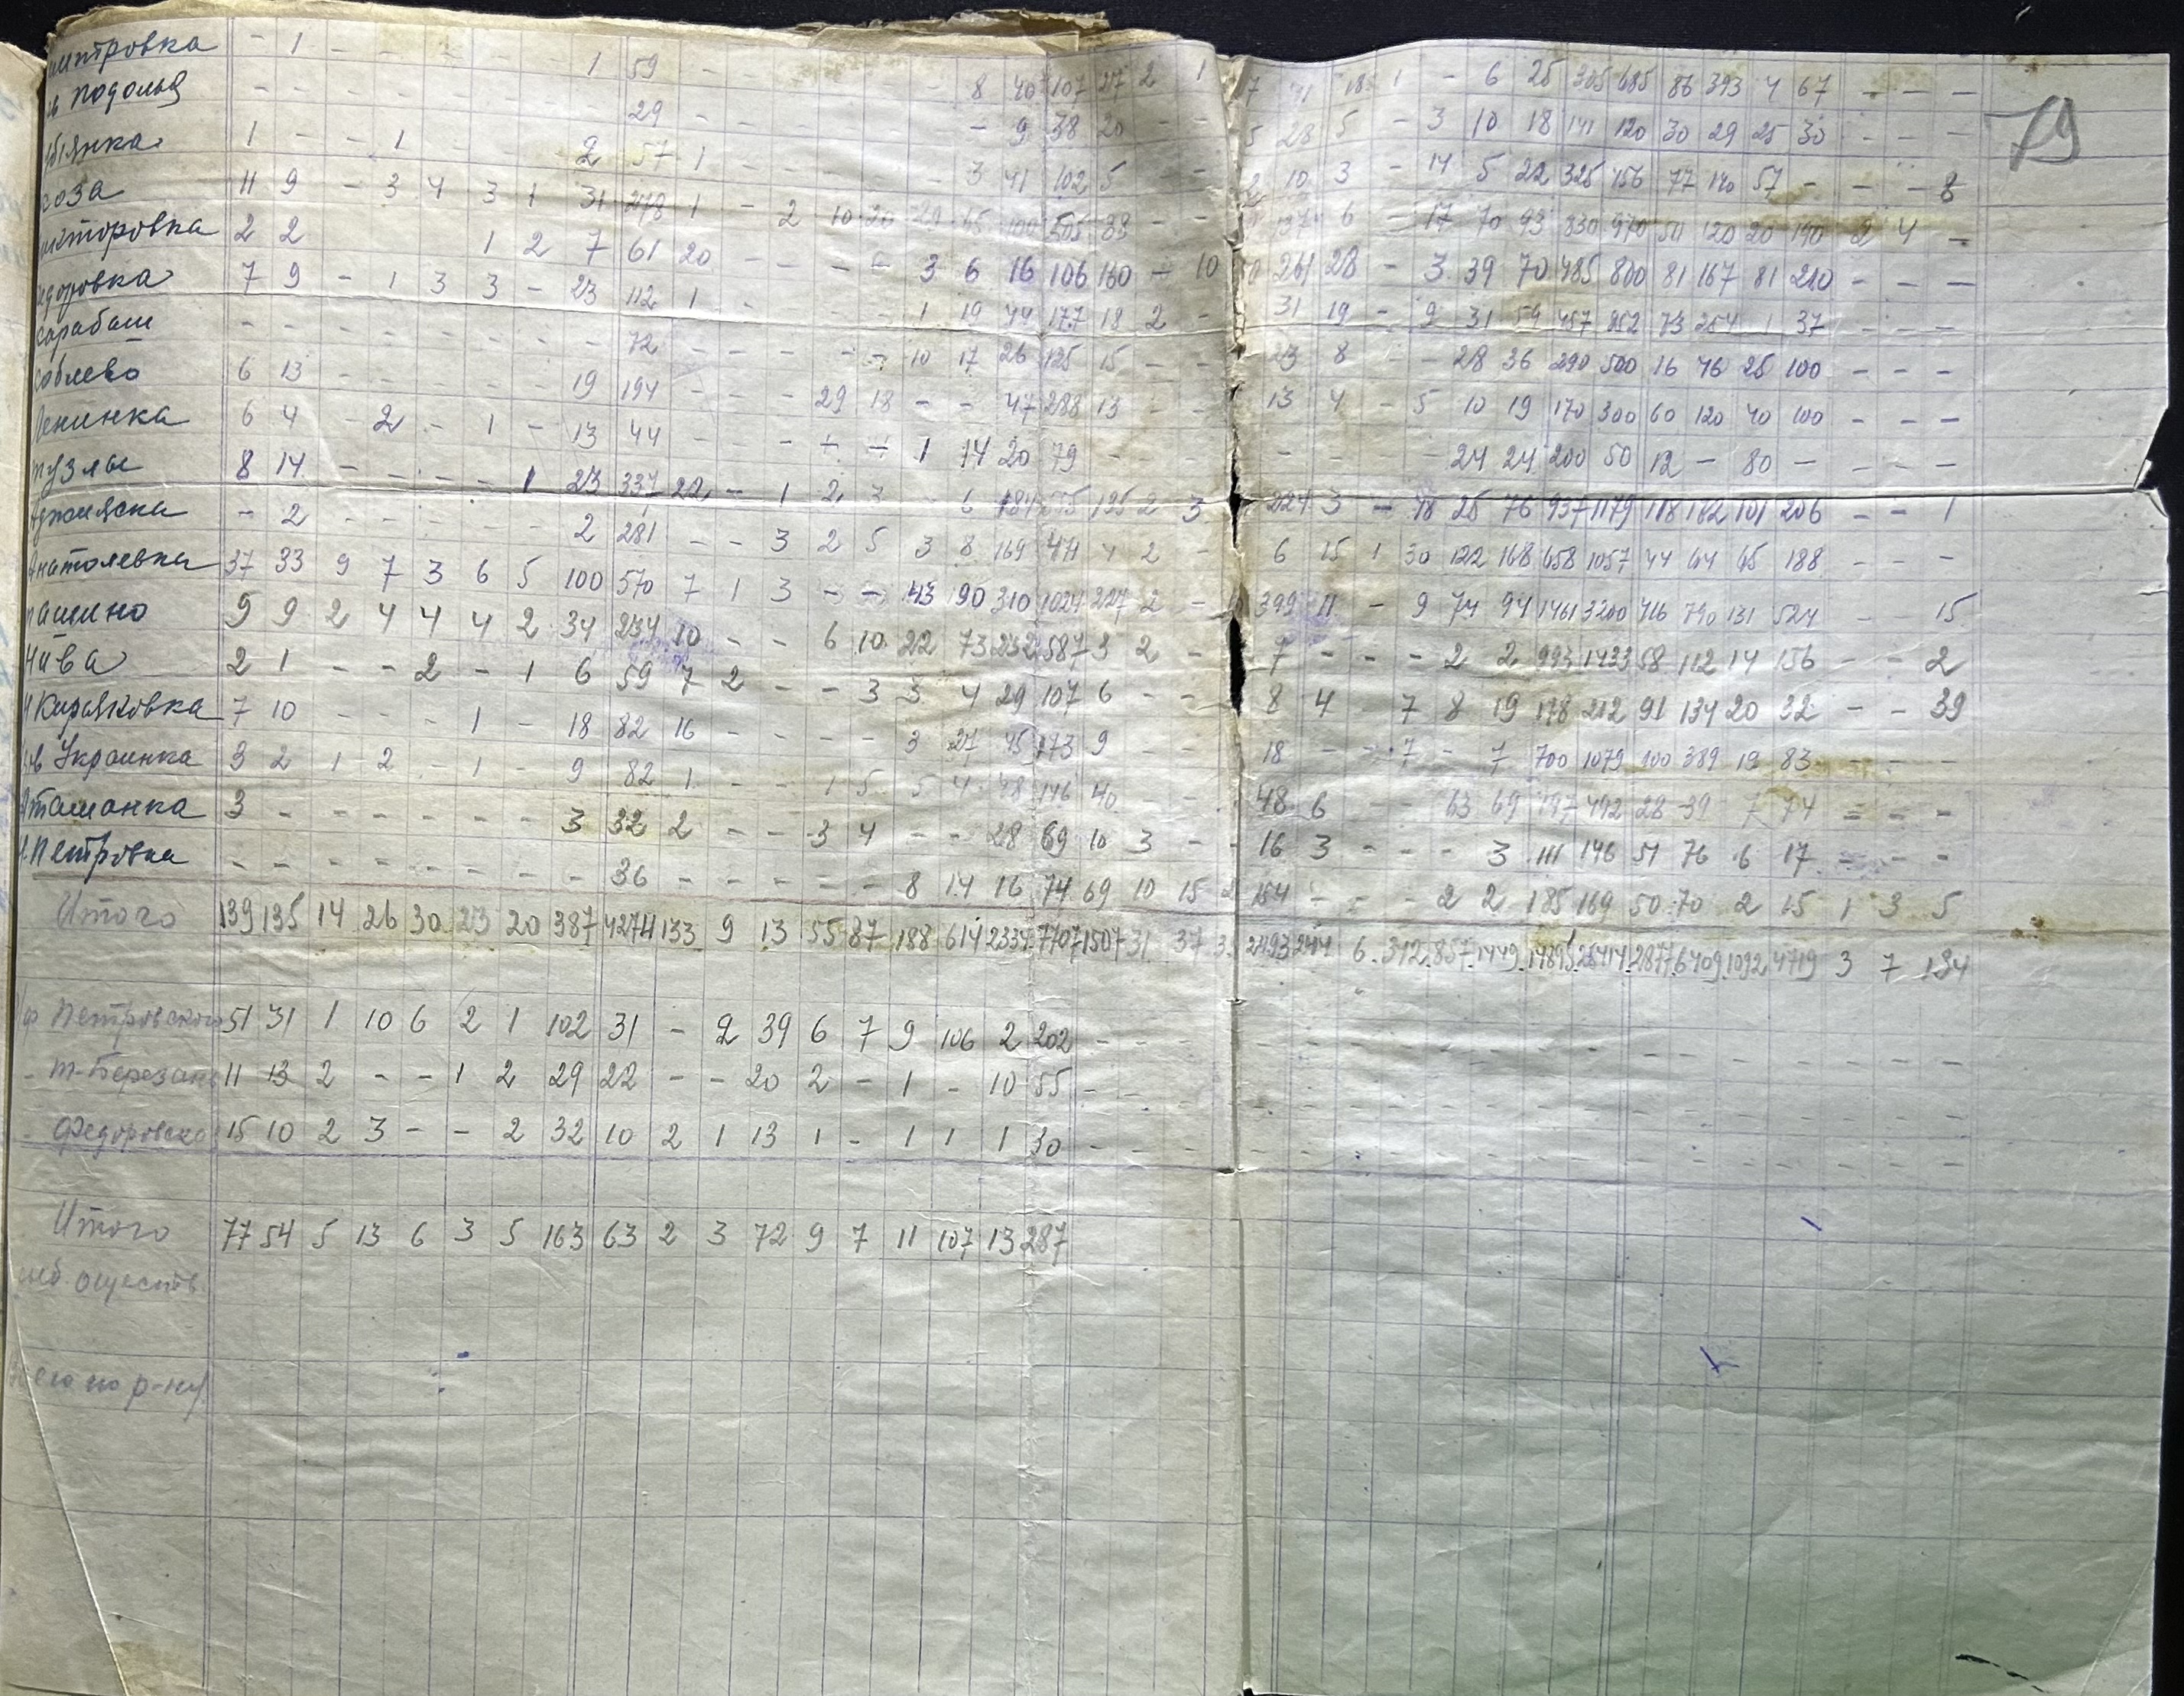 79
митровка - 1 - - - - - 1 59 - - - - - - 8 40 107 27 2 1 17 41 18 1 - 6 25 305 685 86 393 4 67 - - -
подоля - - - - - - - - 29 - - - - - - - 9 38 20 - - 5 28 5 - 3 10 18 141 120 30 29 25 30 - - -
1 - - 1 - - - 2 57 1 - - - - - 3 41 102 5 - - 10 3 - 14 5 22 325 456 77 140 57 - - - 8
11 9 - 3 4 3 1 31 278 1 - 2 10 20 29 65 100 505 83 - - 137 6 - 17 70 93 830 970 50 120 20 190 2 4 -
кторовка 2 2 1 2 7 61 20 - - - - 3 6 16 106 160 - 10 261 28 - 3 39 70 485 800 81 167 81 210 - - -
едоровка 7 9 - 1 3 3 - 23 112 1 - 1 19 44 177 18 2 - 31 19 - 9 31 59 457 852 73 254 1 37 - - -
сарабаш - - - - - - - - 72 - - - - - 10 17 26 125 15 - - 23 8 - - 28 36 290 500 16 76 25 100 - - -
соблево 6 13 - - - - - 19 194 - - - 29 18 - - 47 288 13 - - 13 4 - 5 10 19 170 300 60 120 40 100 - - -
Ленинка 6 4 - 2 - 1 - 13 44 - - - - - 1 14 20 79 - - - - - - - 24 24 200 50 12 - 80 - - - -
тузлы 8 14 - - - - 1 23 337 22 - 1 2 3 - 6 184 555 125 2 3 224 3 - 48 25 76 937 1179 118 182 101 206 - - 1
- 2 - - - - - 2 281 - - 3 2 5 3 8 169 471 4 2 - 6 15 1 30 122 168 658 1057 44 64 65 188 - - -
Анатолевка 37 33 9 7 3 6 5 100 570 7 1 3 - - 43 90 310 1024 227 2 - 399 11 - 9 74 94 1461 3200 416 790 131 524 - - 15
ташино 9 9 2 4 4 4 2 34 234 10 - - 6 10 22 73 232 587 3 2 - 7 - - - 2 2 993 1433 58 112 14 156 - - 2
Нива 2 1 - - 2 - 1 6 59 7 2 - - 3 3 4 29 107 6 - - 8 4 - 7 8 19 178 212 91 134 20 32 - - 39
Н Киряковка 7 10 - - - 1 - 18 82 16 - - - - 3 27 45 173 9 - - 18 - - 7 - 7 700 1079 100 389 19 83 - - -
Украинка 3 2 1 2 - 1 - 9 82 1 - - 1 5 5 4 48 146 40 - - 48 6 - - 63 69 197 492 28 39 7 74 - - -
Атаманка 3 - - - - - - 3 32 2 - - 3 4 - - 28 69 10 3 - 16 3 - - - 3 111 146 51 76 6 17 - - -
Петровка - - - - - - - - 36 - - - - - 8 14 16 74 69 10 15 154 - - - 2 2 185 169 50 70 2 15 1 3 5
Итого 139 135 14 26 30 23 20 387 4274 133 9 13 55 87 188 614 2335 7707 1507 31 37 2493 244 6 312 857 1449 14895 26414 2877 6409 1092 4719 3 7 134
Петровского 51 31 1 10 6 2 1 102 31 - 2 39 6 7 9 106 2 202 - - - - - - - - - - - - - - - - - -
- т-Березань 11 13 2 - - 1 2 29 22 - - 20 2 - 1 - 10 55 - - - - - - - - - - - - - - - - - -
- Федоровско 15 10 2 3 - - 2 32 10 2 1 13 1 - 1 1 1 30 - - - - - - - - - - - - - - - - - -
Итого 77 54 5 13 6 3 5 163 63 2 3 72 9 7 11 107 13 287
по р-ну